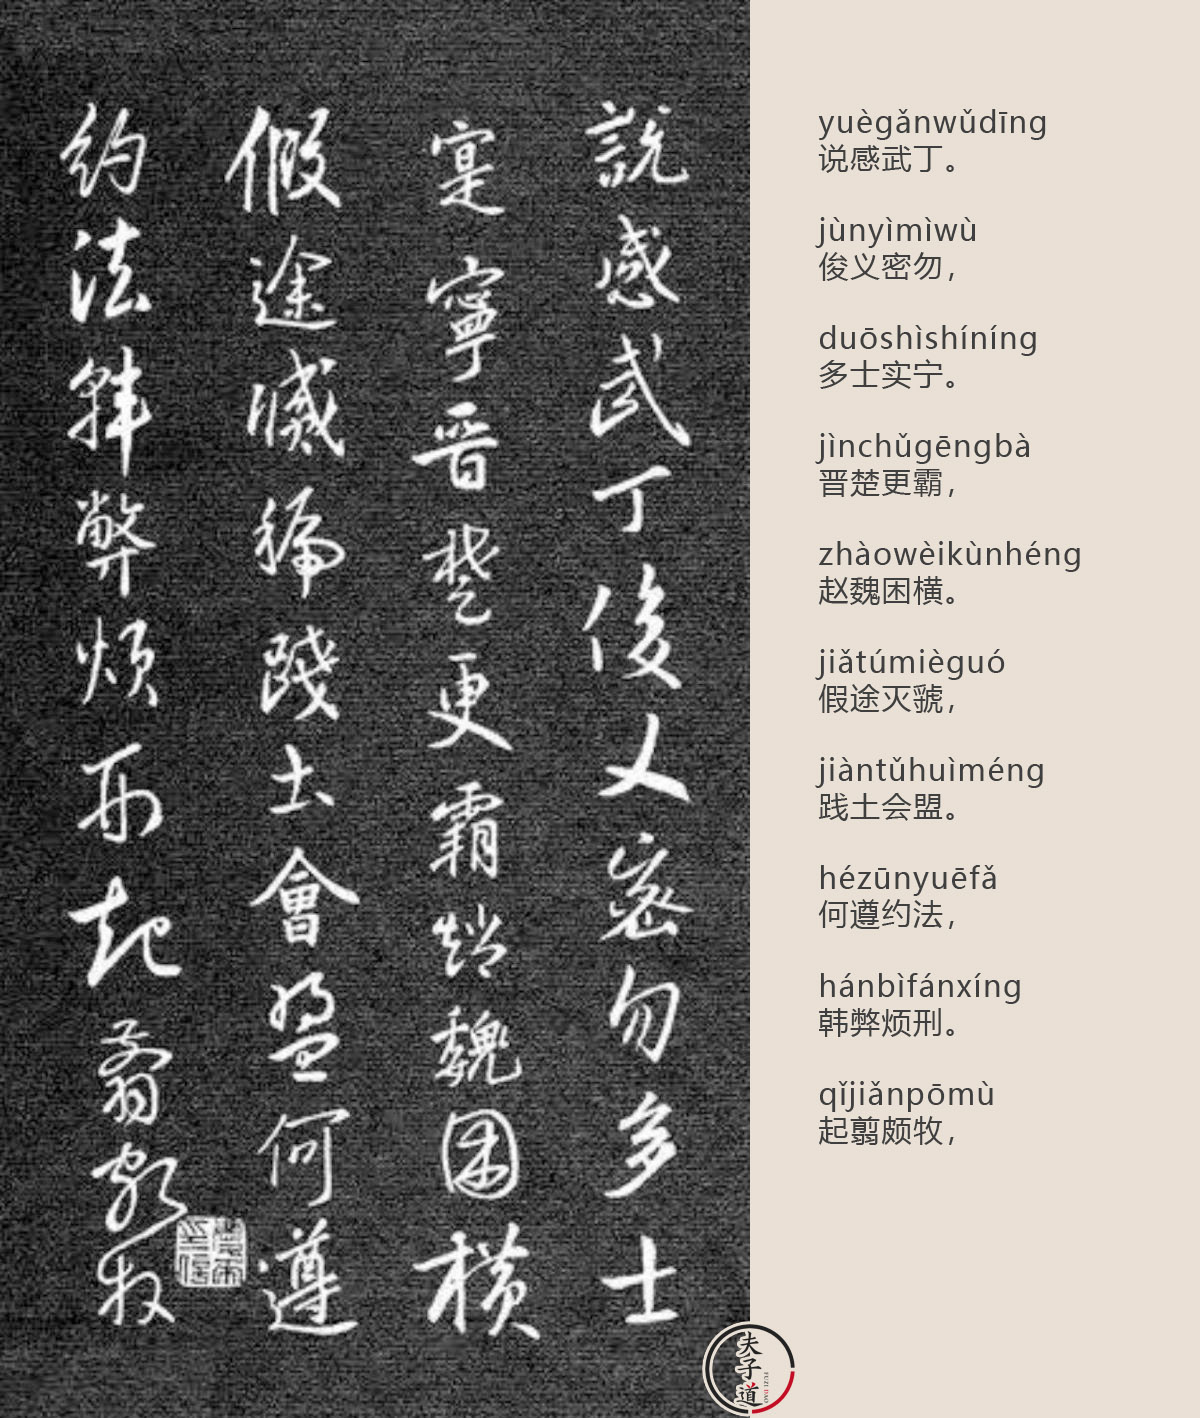 說感武丁俊乂密勿多士
寔寧晋楚更霸趙魏困横
假途滅虢踐土會盟何遵
約法韓弊煩刑起翦頗牧
yuègǎnwǔdīng
说感武丁。
jùnyìmìwù
俊义密勿，
duōshìshíníng
多士实宁。
jìnchǔgēngbà
晋楚更霸，
zhàowèikùnhéng
赵魏困横。
jiǎtúmièguó
假途灭虢，
jiàntǔhuìméng
践土会盟。
hézūnyuēfǎ
何遵约法，
hánbìfánxíng
韩弊烦刑。
qǐjiǎnpōmù
起翦颇牧，
夫子道
FUZI DAO